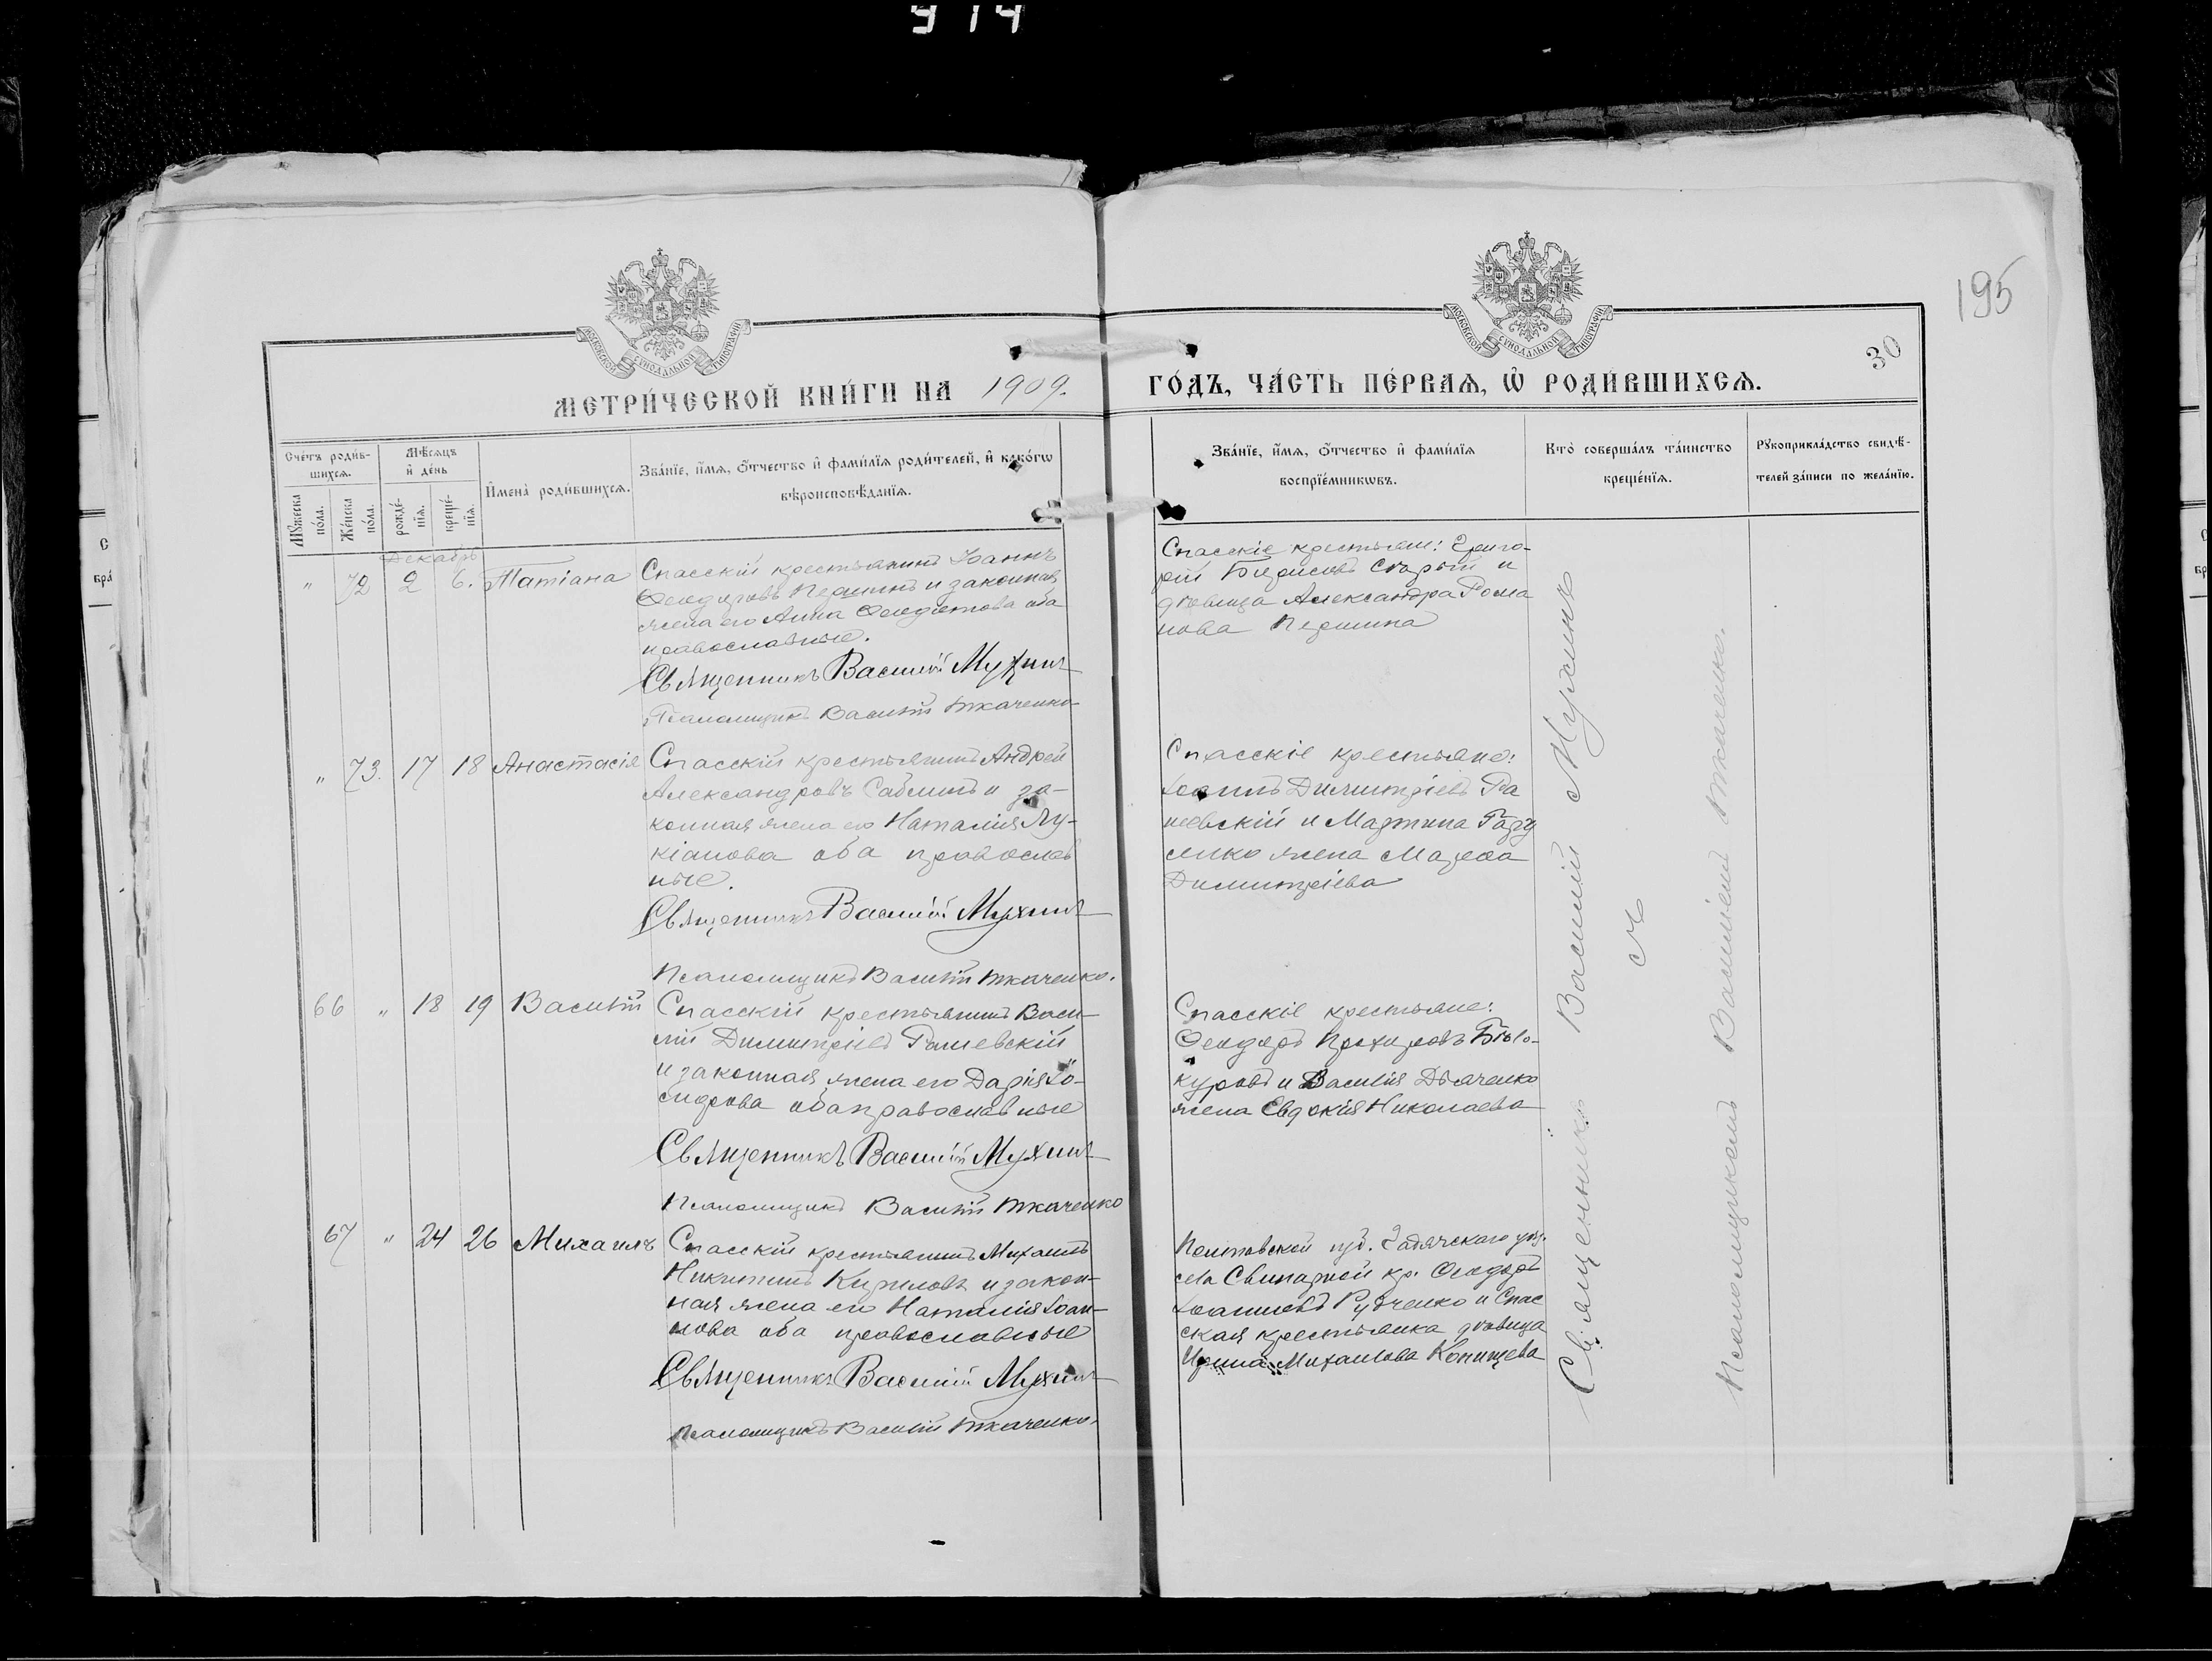 914
195
30
МОСКОВСКОЙ СѴНОДАЛЬНОЙ ТИПОГРАФІИ
МОСКОВСКОЙ СѴНОДАЛЬНОЙ ТИПОГРАФІИ
МЕТРИ́ЧЕСКОЙ КНИ́ГИ НА 1909. ГО́ДЪ, ЧА́СТЬ ПЕ́РВАѦ, Ѽ РОДИ́ВШИХСѦ.
Сче́тъ роди́в-
шихсѧ.
Мꙋ́жеска
по́ла.
Же́нска
по́ла.
Мѣ́сѧцъ
и҆ де́нь
рожде́-
нїѧ.
креще́-
нїѧ.
И҆мена̀ роди́вшихсѧ.
Зва́нїе, и҆́мѧ, ѻ҆́тчество и҆ фами́лїѧ роди́телей, и҆ како́гѡ
вѣроисповѣ́данїѧ.
Зва́нїе, и҆́мѧ, ѻ҆́тчество и҆ фами́лїѧ
воспрїе́мникѡвъ.
Кто̀ соверша́лъ та́инство
креще́нїѧ.
Рꙋкоприкла́дство свидѣ́-
телей за́писи по жела́нїю.
Декабрь
" 72 2 6. Татіана
Спасскій крестьянинъ Іоаннъ
Ѳеодоровъ Першинъ и законная
жена его Анна Ѳеодотова оба
православные.
Священникъ Василій Мухинъ
Псаломщикъ Василій Ткаченко
Спасскіе крестьяне: Григо-
рій Борисовъ Старый и
дѣвица Александра Рома
нова Першина
" 73. 17 18 Анастасія
Спасскій крестьянинъ Андрей
Александровъ Саблинъ и за-
конная жена его Наталія Лу-
кіанова оба православ
ные.
Священникъ Василій Мухинъ
Псаломщикъ Василій Ткаченко.
Спасскіе крестьяне:
Іоаннъ Димитріевъ Ра
шевскій и Мартина
жена Марѳа
Димитріева
66 " 18 19 Василій
Спасскій крестьянинъ Васи-
лій Димитріевъ Рашевскій
и законная жена его Дарія Іо-
сифова оба православные
Священникъ Василій Мухинъ
Псаломщикъ Василій Ткаченко
Спасскіе крестьяне:
Ѳеодоръ Прохоровъ Бѣло-
куровъ и Василія Дьяченко
жена Евдокія Николаева
67 " 24 26 Михаилъ
Спасскій крестьянинъ Михаилъ
Никитинъ Кириловъ и закон-
ная жена его Наталія Іоан-
нова оба православные
Священникъ Василій Мухинъ
Псаломщикъ Василій Ткаченко.
Полтавской губ. Гадячскаго уѣз.
села Свинарной кр. Ѳеодоръ
Іоанновъ Рудченко и Спас
ская крестьянка дѣвица
Ирина Михаилова Конищева
Священникъ Василій Мухинъ
съ
Псаломщикомъ Василіемъ Ткаченко.